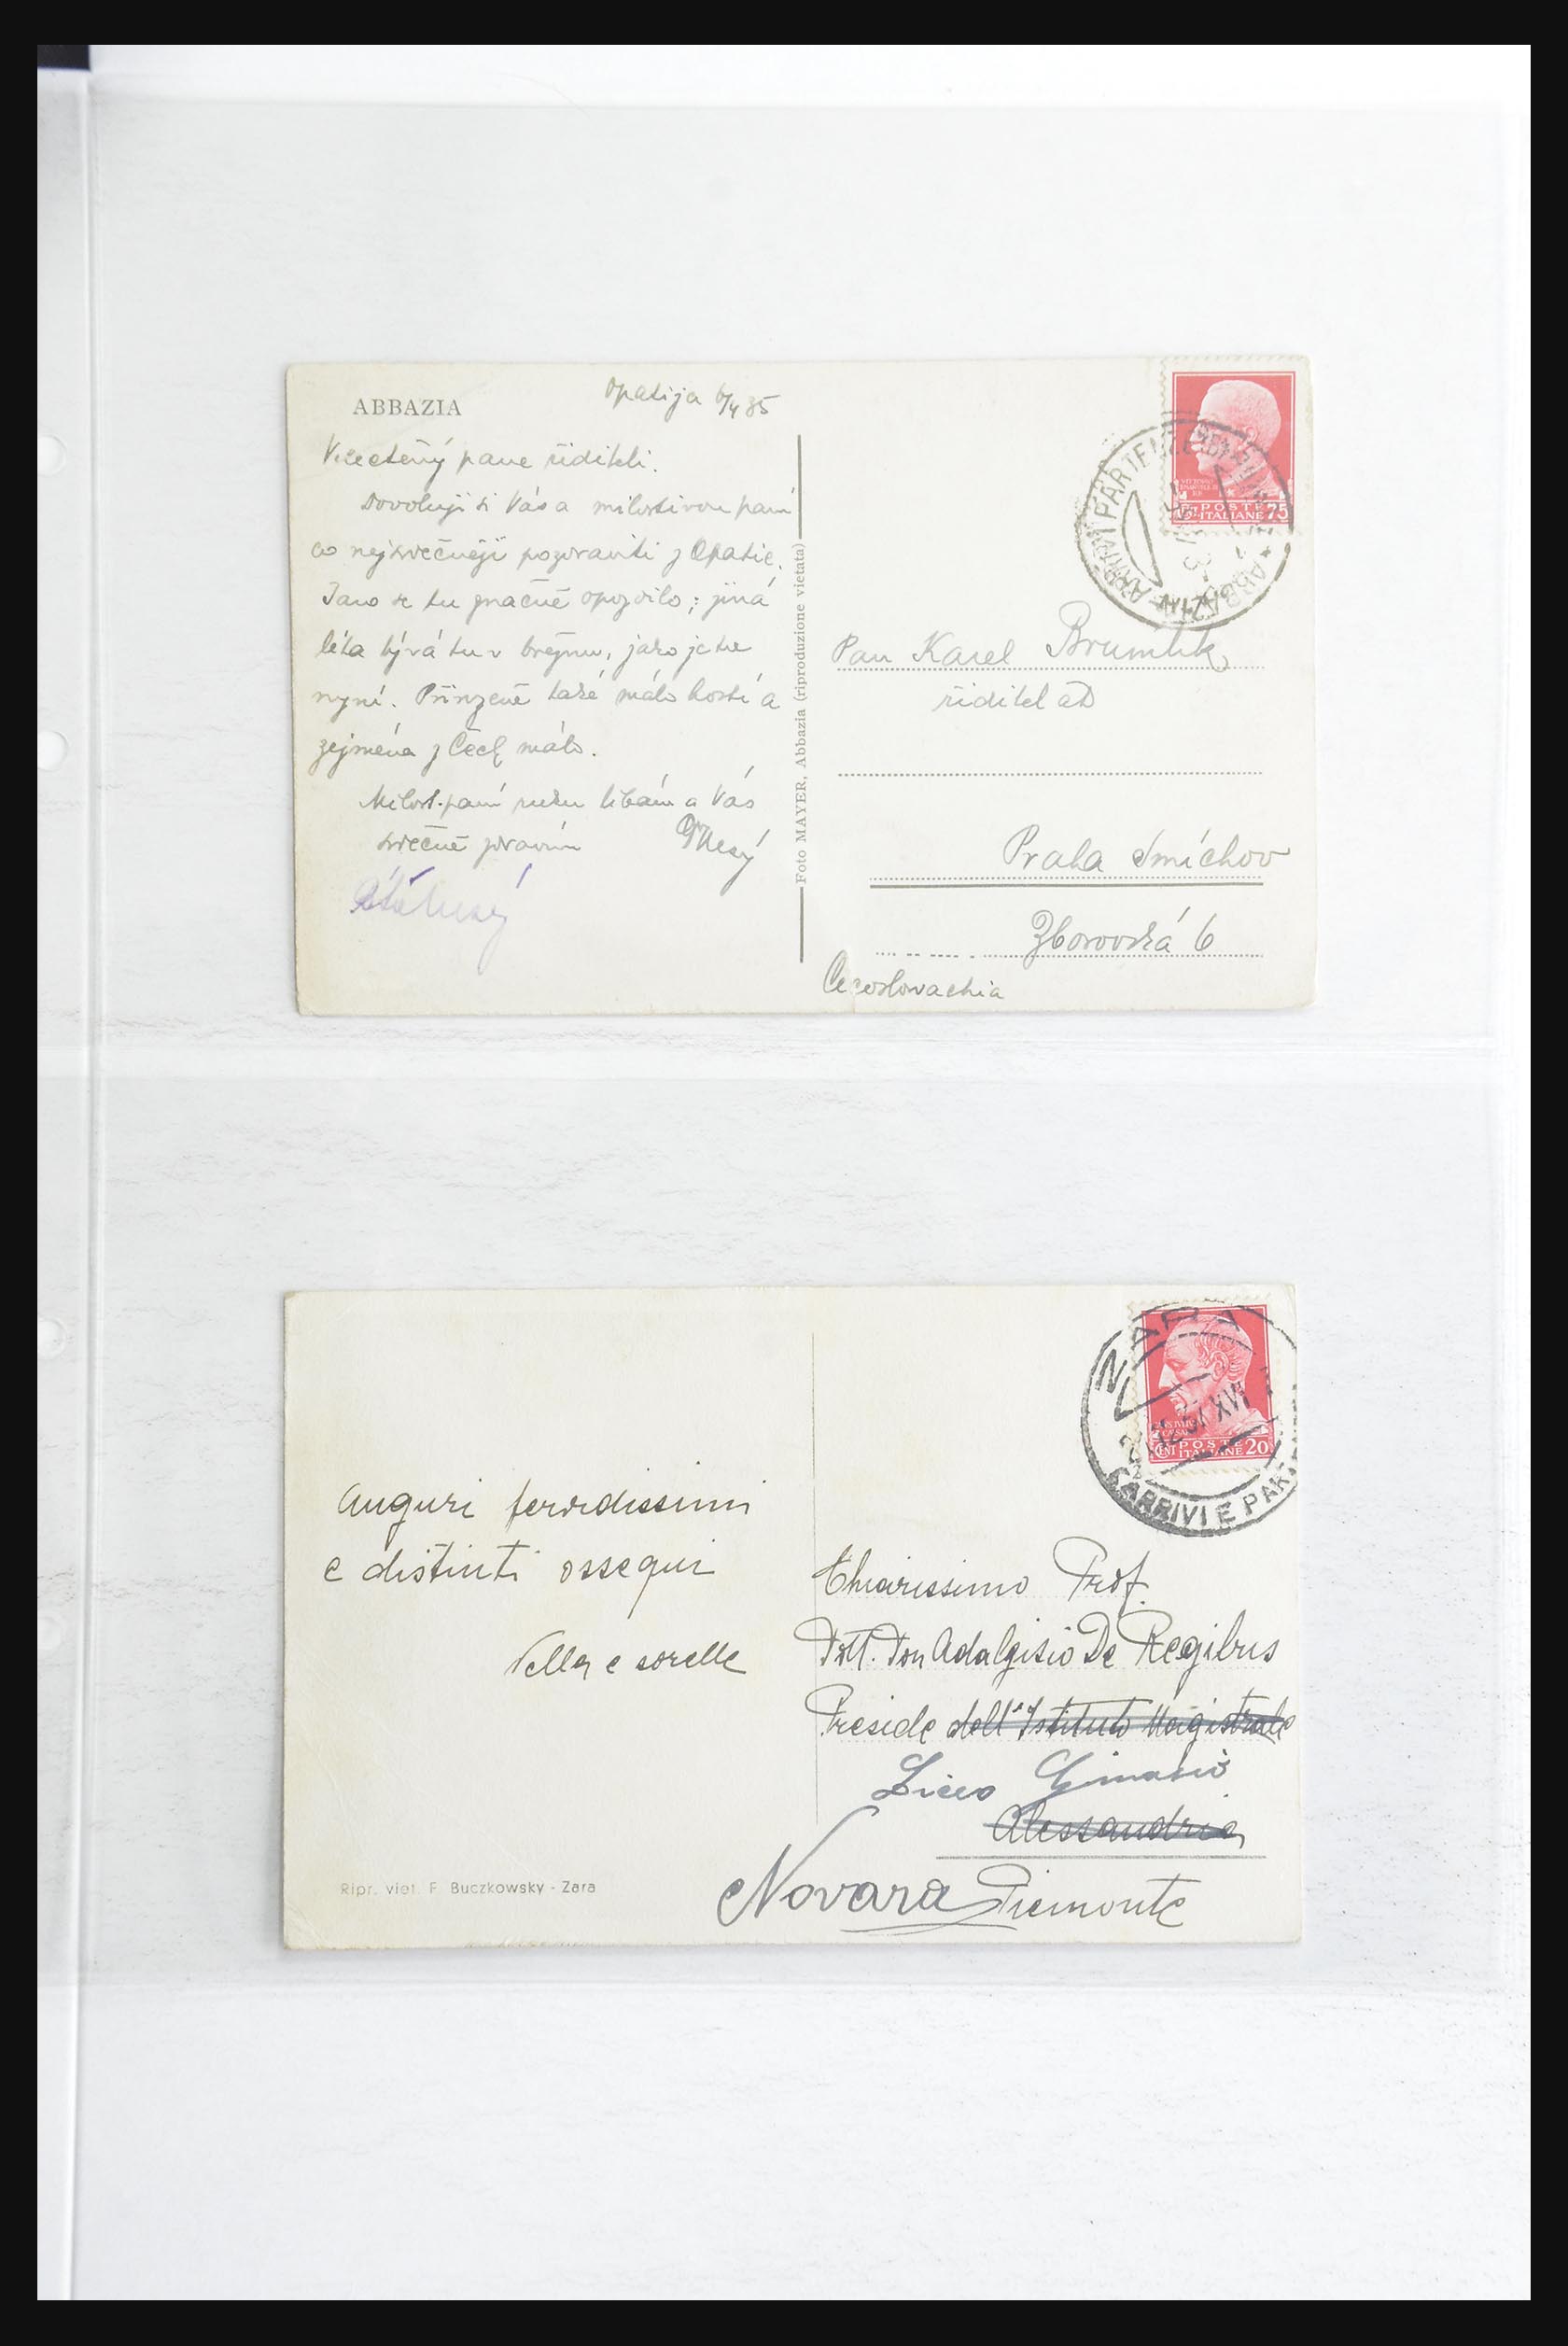 ABBAZIA
Opatija 6/4 35
Velectěný pane řediteli.
Dovoluji si Vás a milostivou paní
co nejsrdečněji pozdraviti z Opatie.
Jaro se tu značně opozdilo; jiná
léta bývá tu v březnu, jako je tu
nyní. Přirozeně také málo hostí a
zejména z Čech málo.
Milost. paní ruku líbám a Vás
srdečně zdravím
Foto MAYER, Abbazia (riproduzione vietata)
POSTE
ITALIANE 75
ARRIVI PARTENZE
ABBAZIA
Pan Karel Brumlik
ředitel
Praha Smíchov
Zborovská 6
Cecoslovachia
ZARA
XVI
POSTE
ITALIANE 20
ARRIVI E PAR
Auguri fervidissimi
e distinti ossequi
Nella e sorelle
Chiarissimo Prof.
Dott. Don Adalgisio De Regibus
Preside dell'Istituto Magistrale
Liceo Ginnasio
Alessandria
Novara Piemonte
Ripr. viet. F. Buczkowsky - Zara